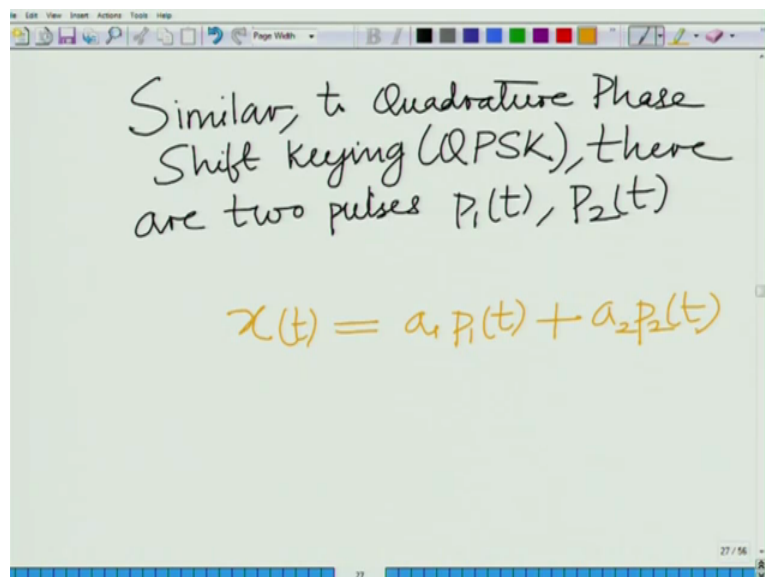 File Edit View Insert Actions Tools Help
Page Width
B I
Similar, to Quadrature Phase
Shift Keying (QPSK), there
are two pulses p₁(t), p₂(t)
x(t) = a₁ p₁(t) + a₂ p₂(t)
27 / 56
27